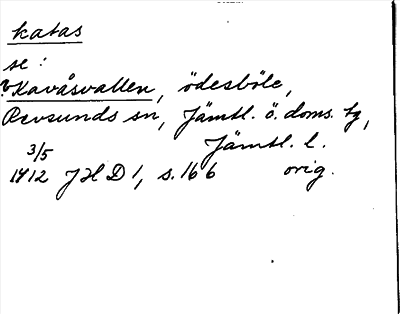 katas
se:
?Kavåsvallen, ödesböle,
Revsunds sn, Jämtl. ö. doms. tg,
Jämtl. l.
3/5
1412 JHD 1, s. 166 orig.